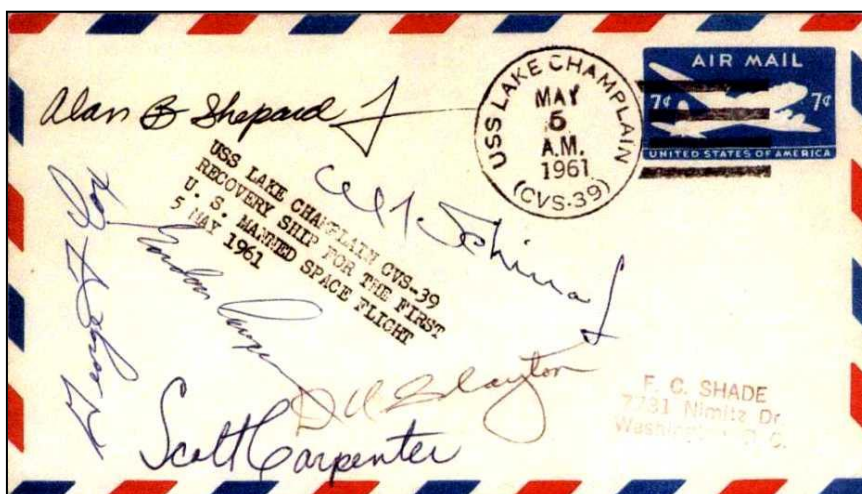 AIR MAIL
7¢ 7¢
UNITED STATES OF AMERICA
USS LAKE CHAMPLAIN
MAY
5
A.M.
1961
(CVS-39)
Alan B Shepard Jr
USS LAKE CHAMPLAIN CVS-39
RECOVERY SHIP FOR THE FIRST
U. S. MANNED SPACE FLIGHT
5 MAY 1961
Schirra
George F Cox
Gordon Cooper
D K Slayton
Scott Carpenter
F. C. SHADE
7731 Nimitz Dr
Washington D. C.